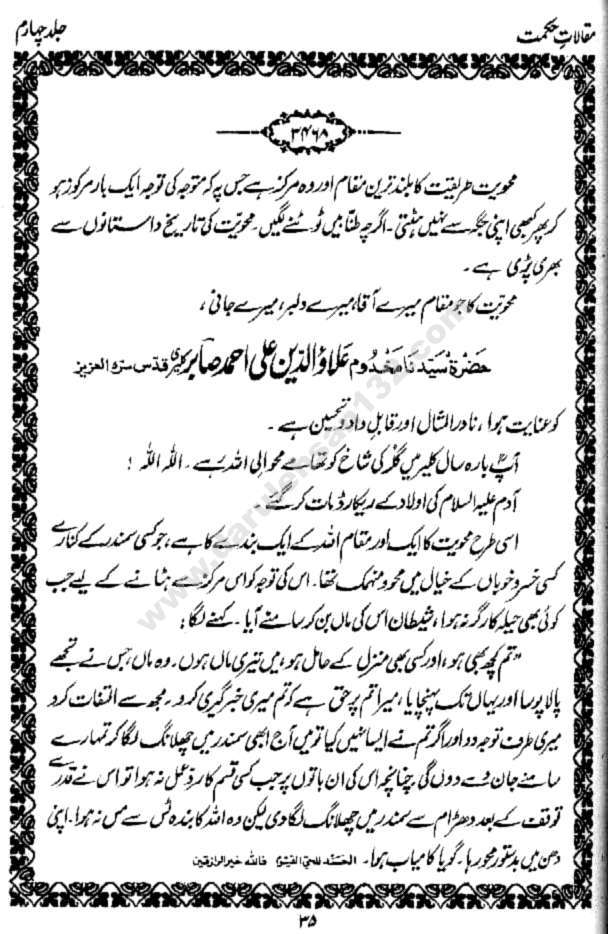 مقالاتِ حکمت
جلد چہارم
۳۴۶۸
محویت طریقیت کا بلند ترین مقام اور وہ مرکز ہے جس پہ کہ متوجہ کی توجہ ایک بار مرکوز ہو
کر پھر کبھی اپنی جگہ سے نہیں ہٹتی ۔ اگرچہ طنابیں ٹوٹنے لگیں ۔ محویّت کی تاریخ داستانوں سے
بھری پڑی ہے ۔
محویّت کا جو مقام میرے آقا، میرے دلبر، میرے جانی ،
حضرۃ سیّدنا مخدوم علاؤالدین علی احمد صابر کلیری قدّس سرہ العزیز
کو عنایت ہوا ، نادرالمثال اور قابلِ داد و تحسین ہے ۔
آپؒ بارہ سال کلیر میں گُلّر کی شاخ کو تھامے محوالی اللہ رہے ۔ اللہ اللہ !
آدم علیہ السلام کی اولاد کے ریکارڈ مات کر گئے ۔
اسی طرح محویت کا ایک اور مقام اللہ کے ایک بندے کا ہے ، جو کسی سمندر کے کنارے
کسی خسروِ خوباں کے خیال میں محو و منہمک تھا ۔ اس کی توجہ کو اس مرکز سے ہٹانے کے لیے جب
کوئی بھی حیلہ کارگر نہ ہوا ، شیطان اس کی ماں بن کر سامنے آیا ۔ کہنے لگا :
”تم کچھ بھی ہو ، اور کسی بھی منزل کے حامل ہو ، میں تیری ماں ہوں ۔ وہ ماں ، جس نے تجھے
پالا پوسا اور یہاں تک پہنچایا ، میرا تم پر حق ہے کہ تم میری خبر گیری کرو ۔ مجھ سے التفات کرو
میری طرف توجہ دو اور اگر تم نے ایسا نہیں کیا تو میں آج ابھی سمندر میں چھلانگ لگا کر تمہارے
سامنے جان دے دوں گی چنانچہ اس کی ان باتوں پر جب کسی قسم کا ردِّ عمل نہ ہوا تو اس نے قدرے
توقف کے بعد دھڑام سے سمندر میں چھلانگ لگا دی لیکن وہ اللہ کا بندہ ٹس سے مس نہ ہوا ۔ اپنی
دھن میں بدستور محو رہا ۔ گویا کامیاب ہوا ۔ الحمد للحی القیوم فاللہ خیر الرازقین
۳۵
www.darulehsan132.com